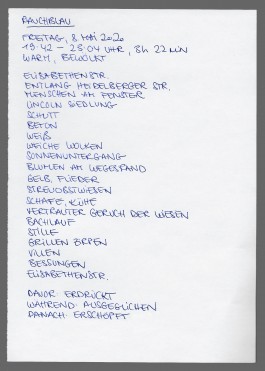 RAUCHBLAU
FREITAG, 8. MAI 2020
19:42 – 23:04 UHR, 3h 22 MIN
WARM, BEWÖLKT
ELISABETHENSTR.
ENTLANG HEIDELBERGER STR.
MENSCHEN AM FENSTER
LINCOLN SIEDLUNG
SCHUTT
BETON
WEIß
WEICHE WOLKEN
SONNENUNTERGANG
BLUMEN AM WEGESRAND
GELB, FLIEDER
STREUOBSTWIESEN
SCHAFE, KÜHE
VERTRAUTER GERUCH DER WIESEN
BACHLAUF
STILLE
GRILLEN ZIRPEN
VILLEN
BESSUNGEN
ELISABETHENSTR.
DAVOR: ERDRÜCKT
WÄHREND: AUSGEGLICHEN
DANACH: ERSCHÖPFT